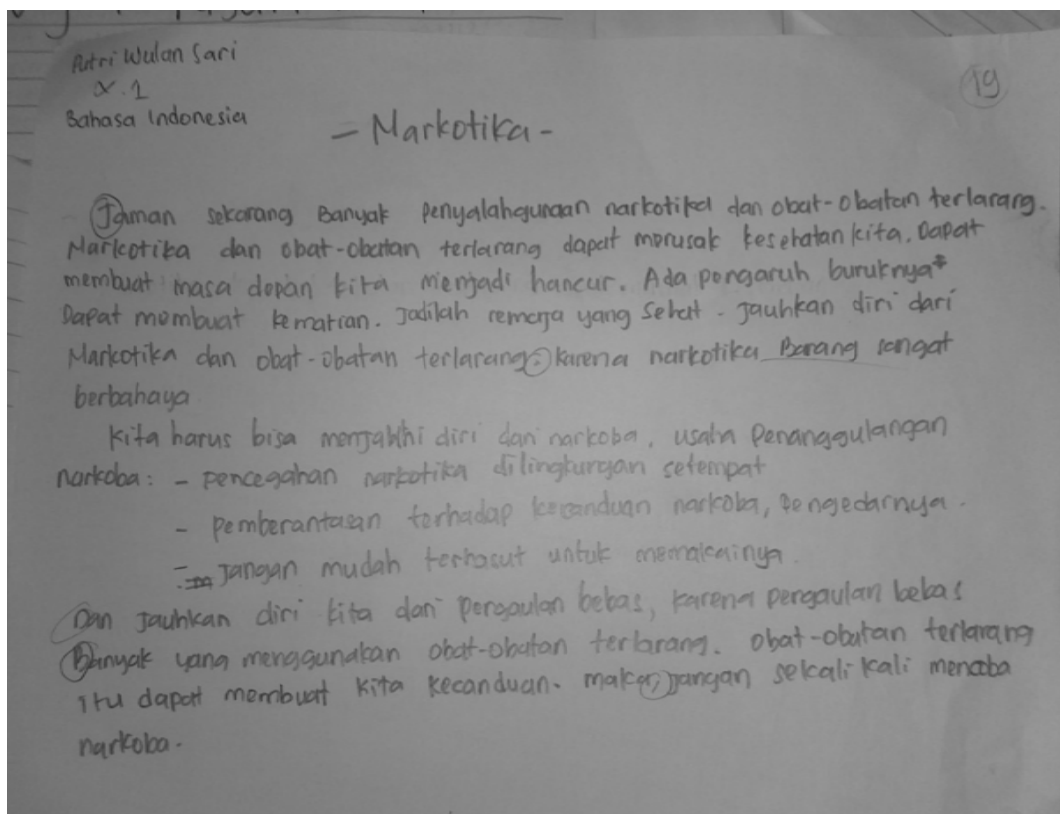 Putri Wulan Sari
X.1
Bahasa Indonesia
19
- Narkotika -
Jaman sekarang Banyak penyalahgunaan narkotika dan obat-obatan terlarang.
Narkotika dan obat-obatan terlarang dapat merusak kesehatan kita. Dapat
membuat masa depan kita menjadi hancur. Ada pengaruh buruknya*
Dapat membuat kematian. Jadilah remaja yang Sehat. Jauhkan diri dari
Narkotika dan obat-obatan terlarang. karena narkotika Barang sangat
berbahaya
Kita harus bisa menjauhi diri dari narkoba. usaha Penanggulangan
narkoba: - pencegahan narkotika dilingkungan setempat
- pemberantasan terhadap kecanduan narkoba, Pengedarnya.
- Jangan mudah terhasut untuk memakainya.
Dan Jauhkan diri kita dari pergaulan bebas, karena pergaulan bebas
Banyak yang menggunakan obat-obatan terlarang. obat-obatan terlarang
itu dapat membuat kita kecanduan. maka, jangan sekali kali mencoba
narkoba.